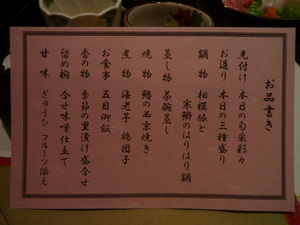 お品書き
先付け 本日の旬菜彩々
お造り 本日の三種盛り
鍋物 相模豚と
寒鰤のはりはり鍋
蒸し物 茶碗蒸し
焼物 鰆の西京焼き
煮物 海老芋 鶏団子
お食事 五目御飯
香の物 季節の里漬け盛合せ
留め椀 合せ味噌仕立て
甘味 ぎゅうひ フルーツ添え